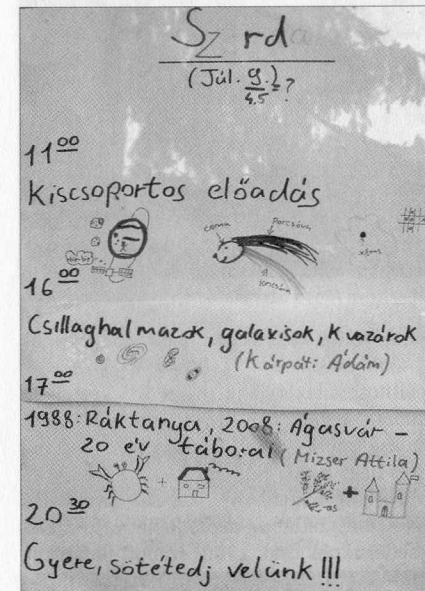 Sz rda
(Júl. 9.)=?
4,5
11 00
Kiscsoportos előadás
coma
porcsóva
ioncsóva
16 00
Csillaghalmazok, galaxisok, kvazárok
(Kárpáti Ádám)
17 00
1988: Ráktanya, 2008: Ágasvár –
20 év táborai (Mizser Attila)
20 30
Gyere, sötétedj velünk!!!